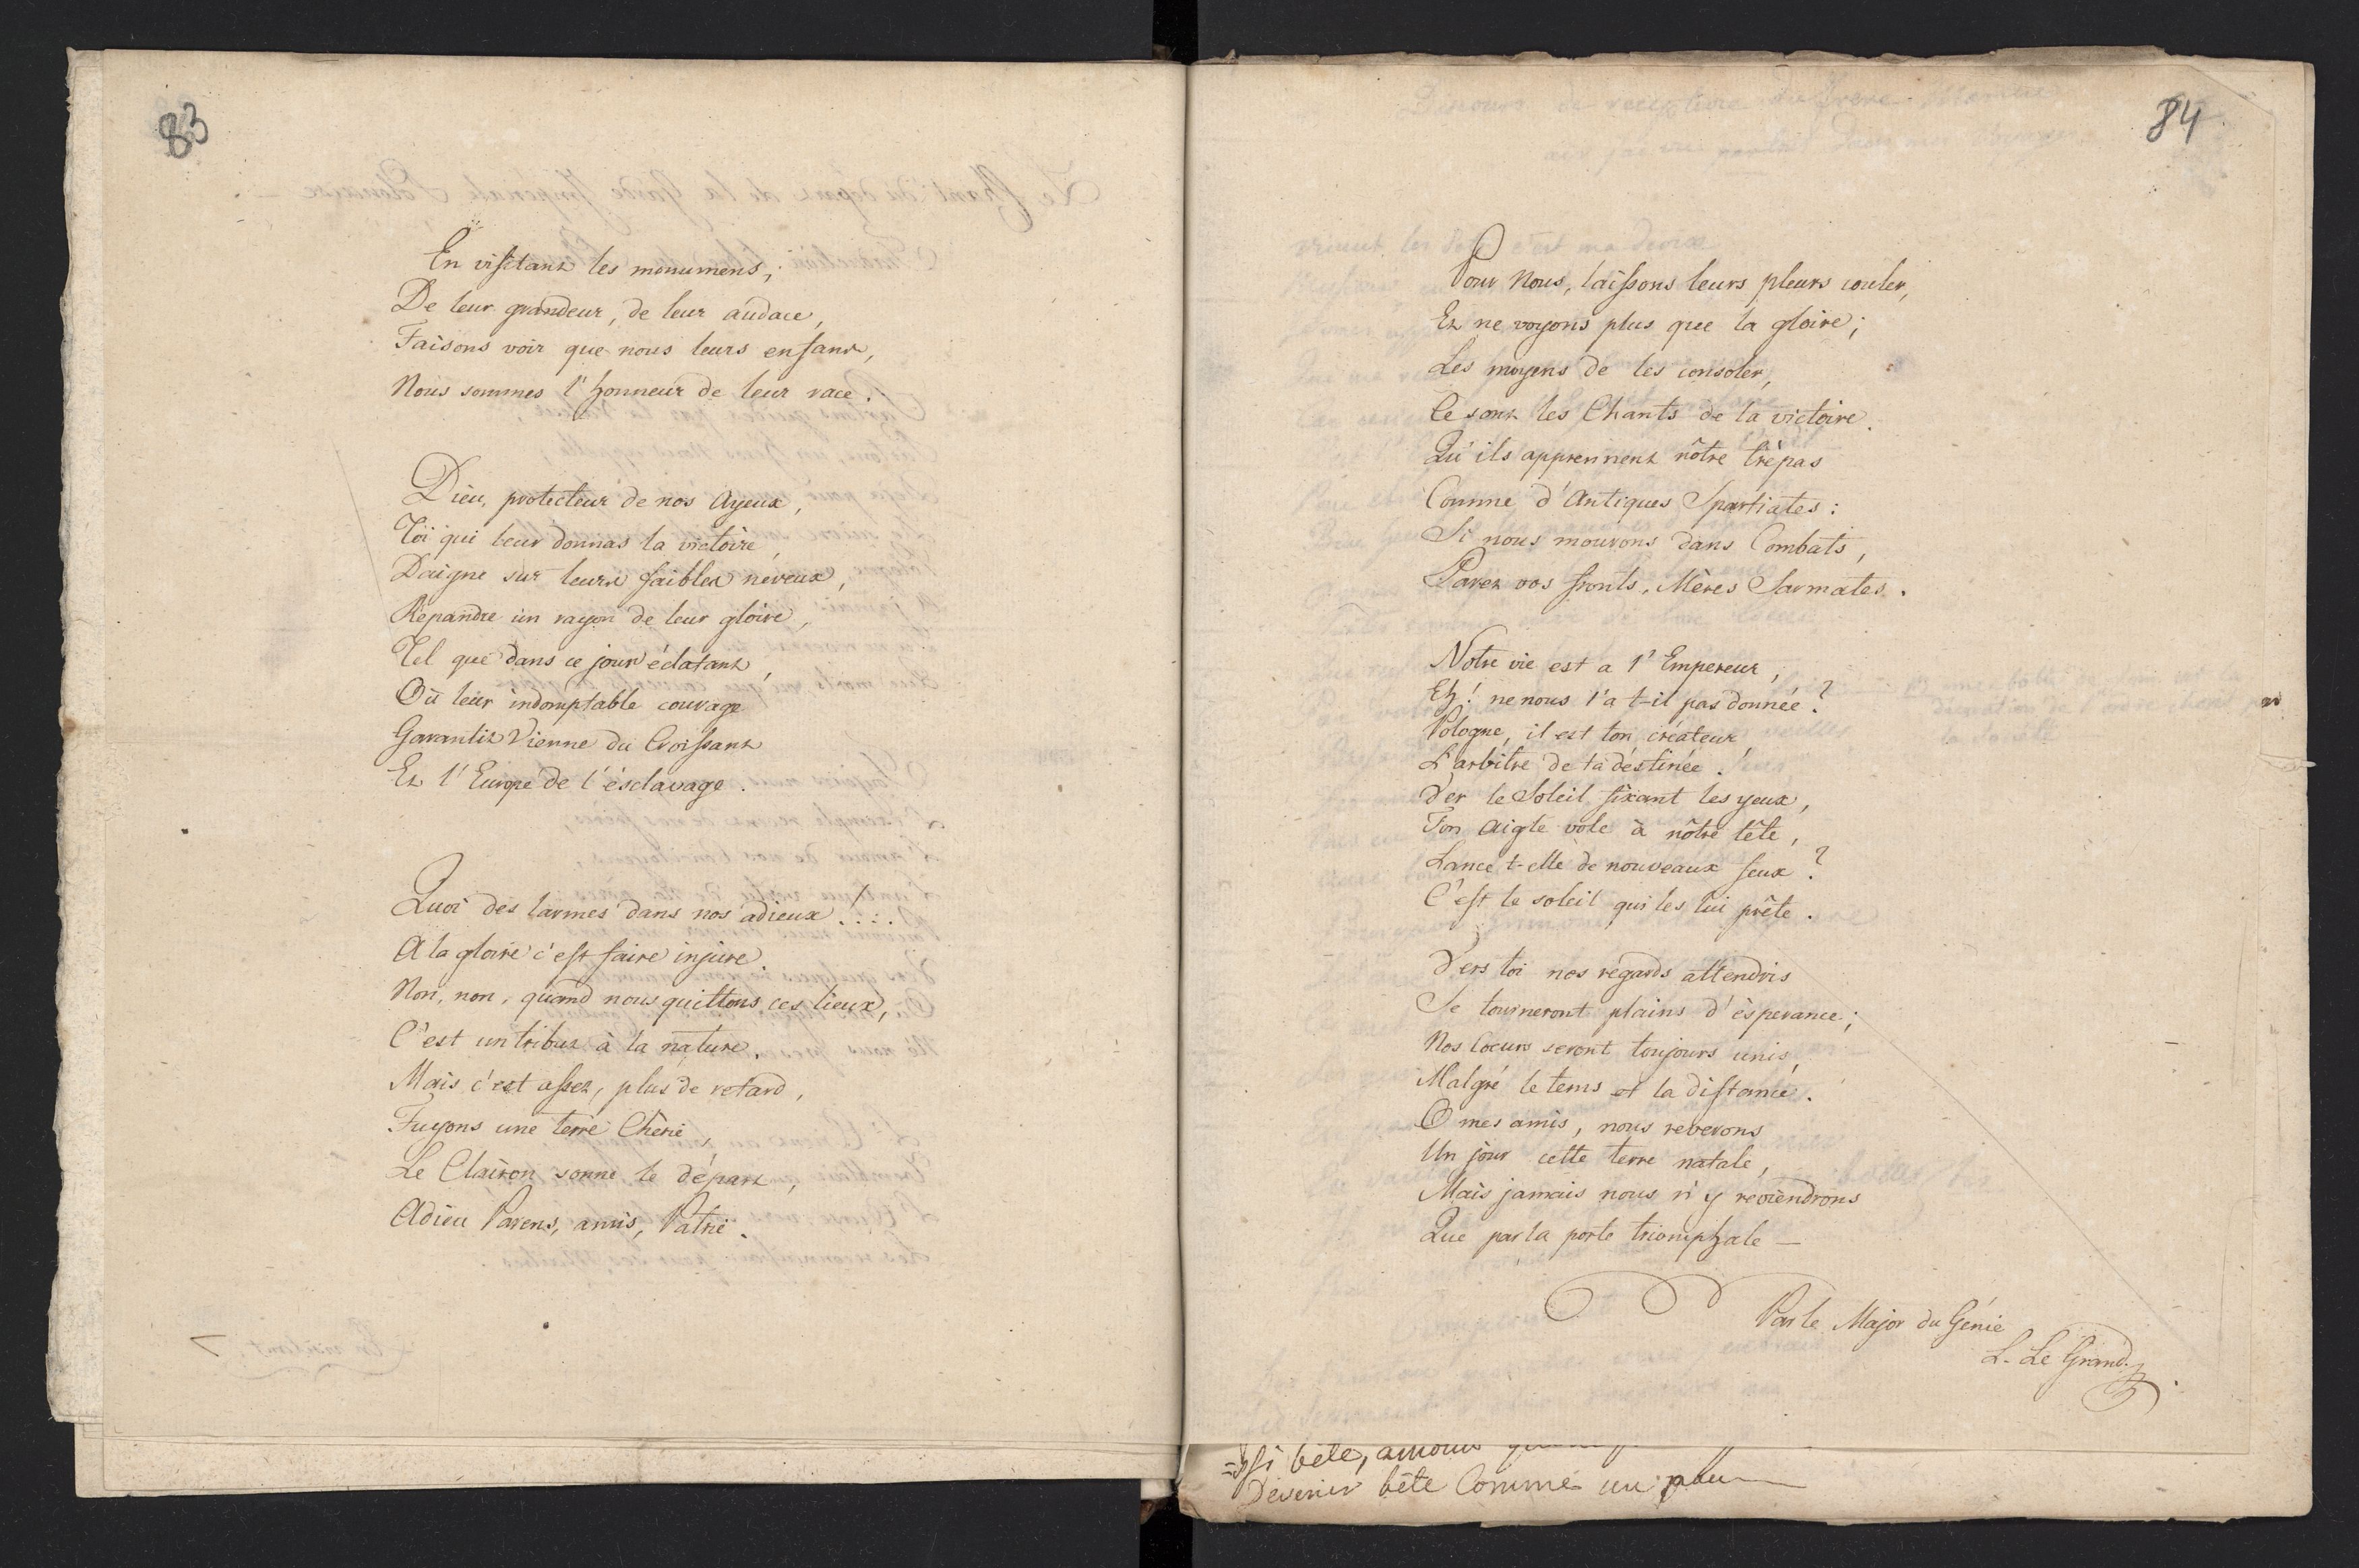 83
En visitant les monumens,
De leur grandeur, de leur audace,
Faisons voir que nous leurs enfans,
Nous sommes l'honneur de leur race.
Dieu, protecteur de nos Ayeux,
Toi qui leur donnas la victoire,
Daigne sur leurs faibles neveux,
Répandre un rayon de leur gloire,
Tel que dans ce jour éclatant,
Où leur indomptable courage
Garantit Vienne du Croissant
Et l'Europe de l'ésclavage.
Quoi des larmes dans nos adieux!...
A la gloire c'est faire injure.
Non, non, quand nous quittons ces lieux,
C'est un tribut à la nature.
Mais c'est assez, plus de retard,
Fuyons une terre Chérie,
Le Clairon sonne le départ,
Adieu Parens, amis, Patrie.
84
Pour Nous, laissons leurs pleurs couler,
Et ne voyons plus que la gloire;
Les moyens de les consoler,
Ce sont les Chants de la victoire.
Qu'ils apprennent nôtre trèpas
Comme d'Antiques Spartiates:
Si nous mourons dans Combats,
Parez vos fronts, Mères Sarmates.
Notre vie est a l'Empereur,
Eh! ne nous l'a t-il pas donnée?
Pologne, il est ton créateur
L'arbitre de ta déstinée.
Ver le Soleil fixant les yeux,
Ton Aigle vole à nôtre tête,
Lance t-elle de nouveaux feux?
C'est le soleil qui les lui prête.
Vers toi nos regards attendris
Se tourneront plains d'èsperance;
Nos Coeurs seront toujours unis,
Malgré le tems et la distance.
O mes amis, nous reverons
Un jour cette terre natale,
Mais jamais nous n'y reviendrons
Que par la porte triomphale —
Par le Major du Génie
L. Le Grand
si bête, amour
Devenir bête Comme un